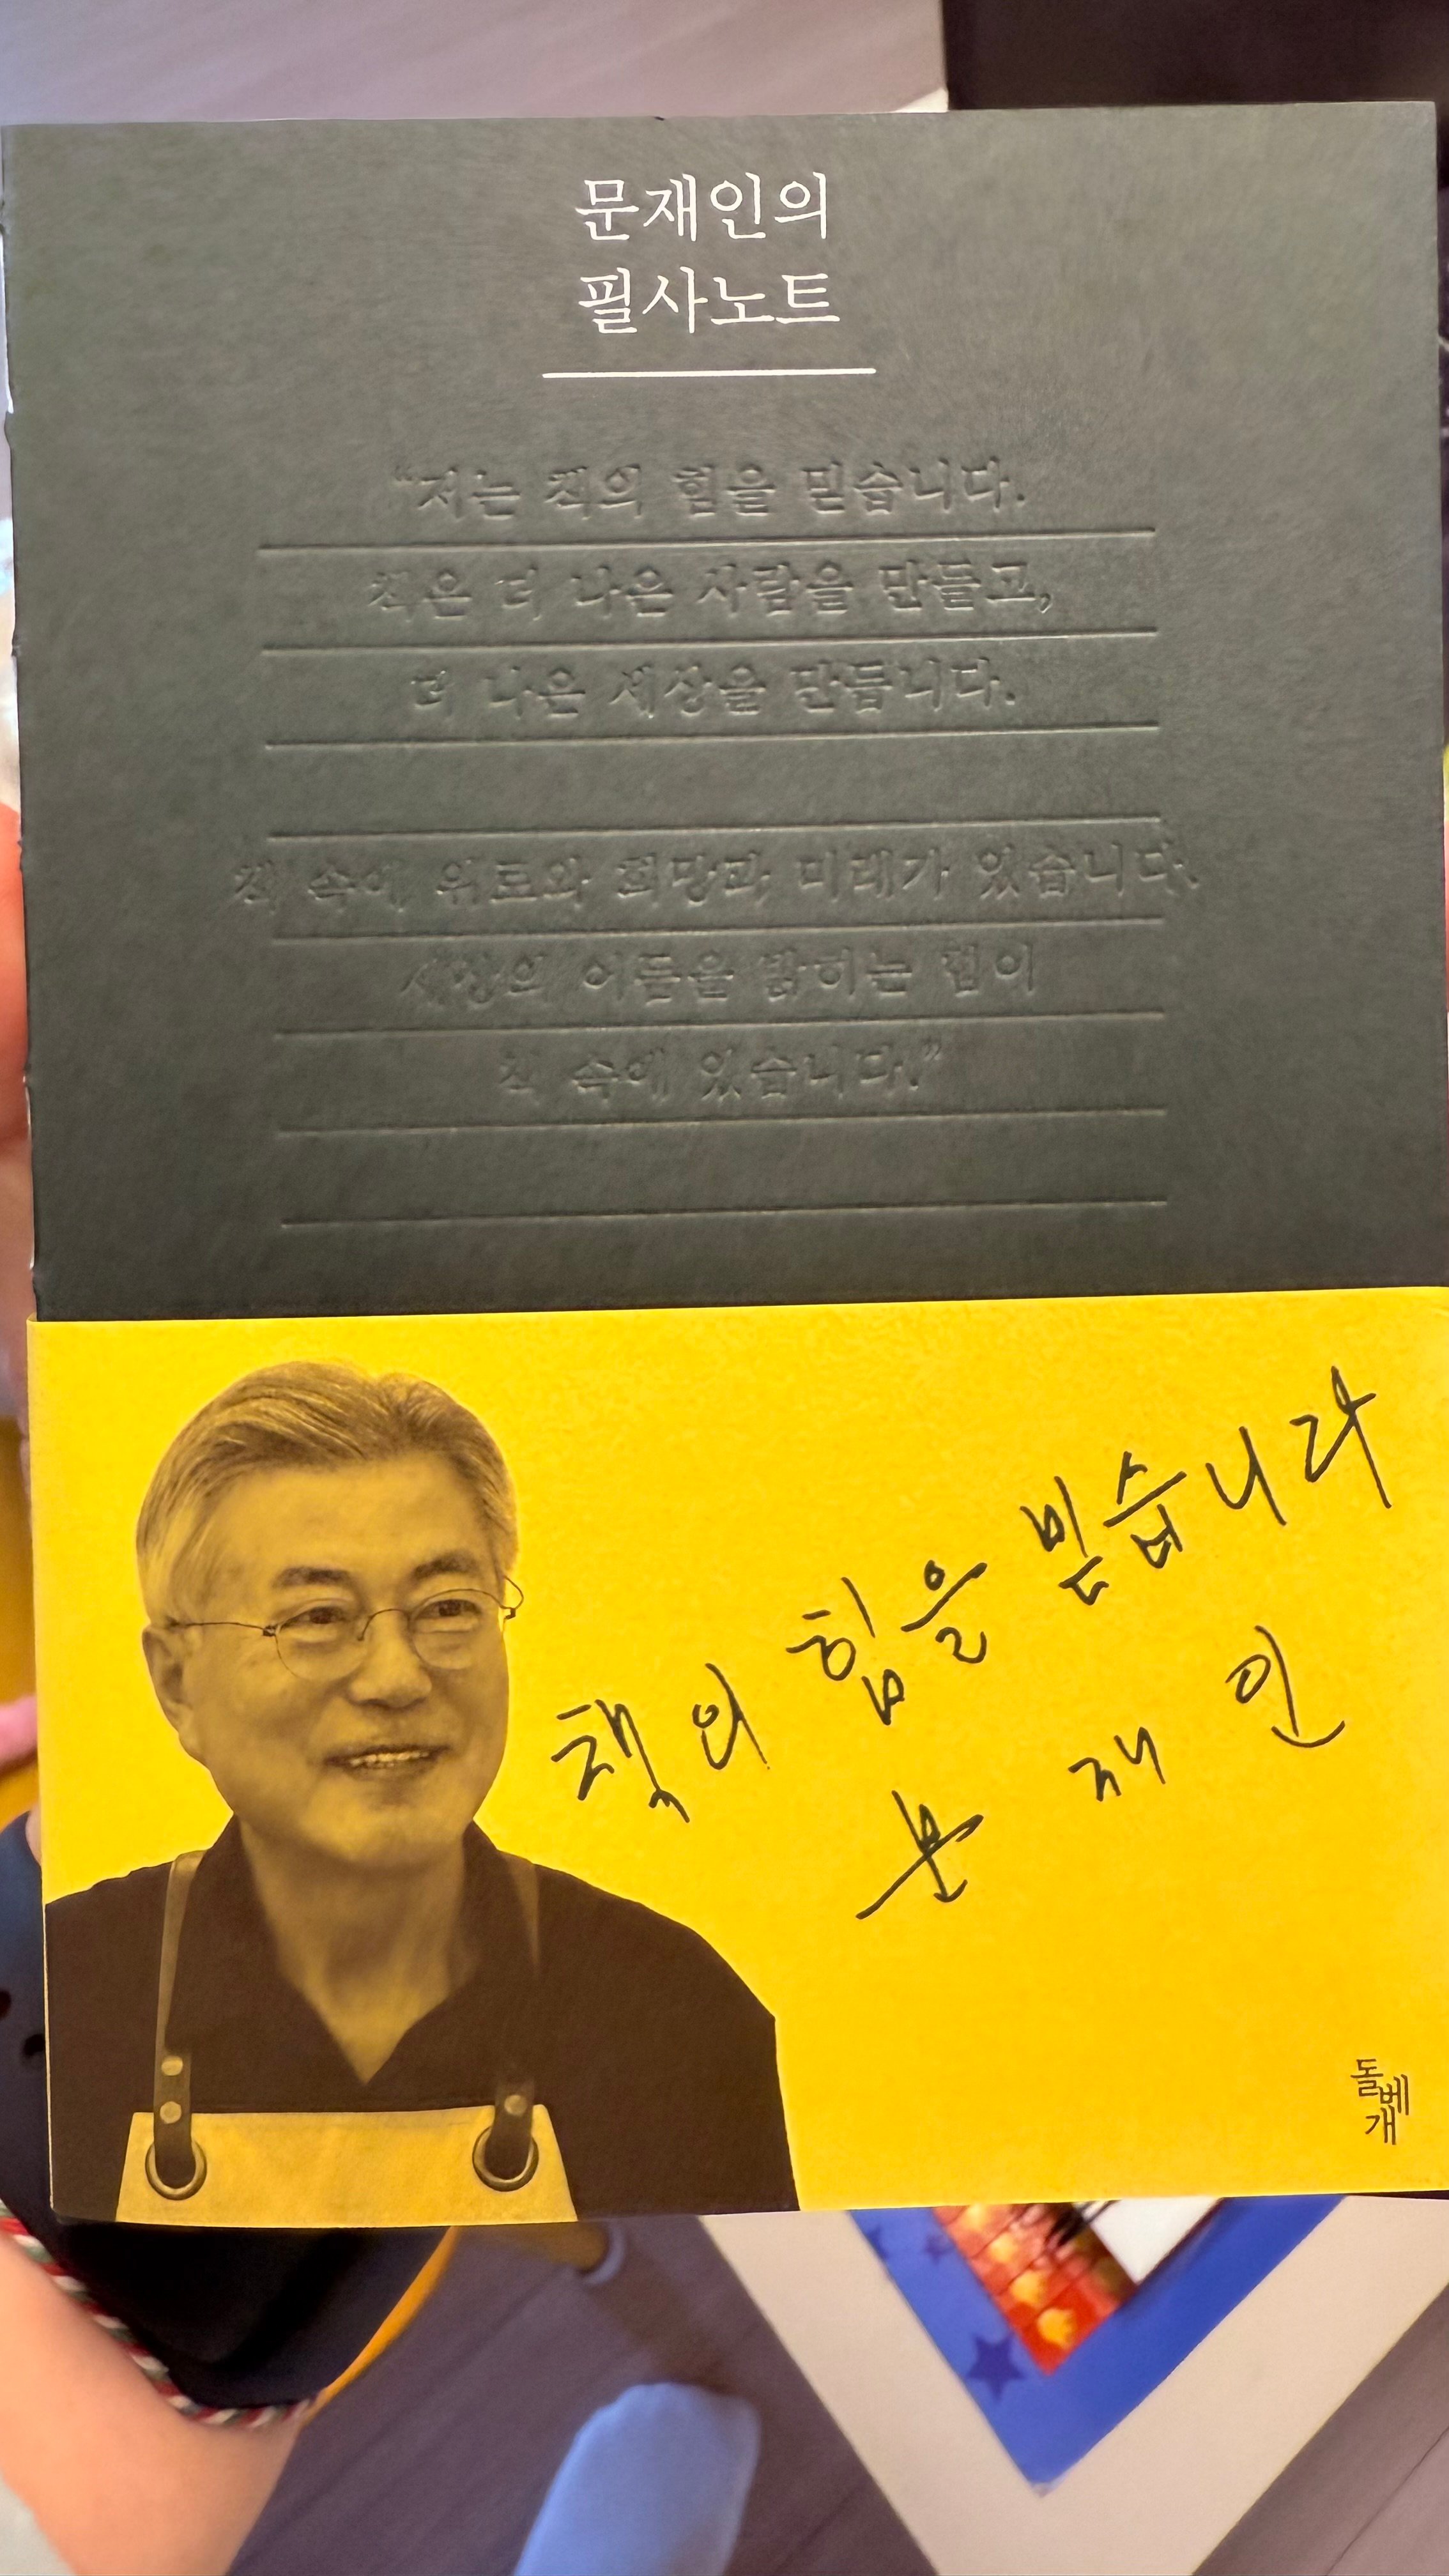 문재인의
필사노트
“저는 책의 힘을 믿습니다.
책은 더 나은 사람을 만들고,
더 나은 세상을 만듭니다.
책 속에 위로와 희망과 미래가 있습니다.
세상의 어둠을 밝히는 힘이
책 속에 있습니다.”
책의 힘을 믿습니다
문재인
돌베개